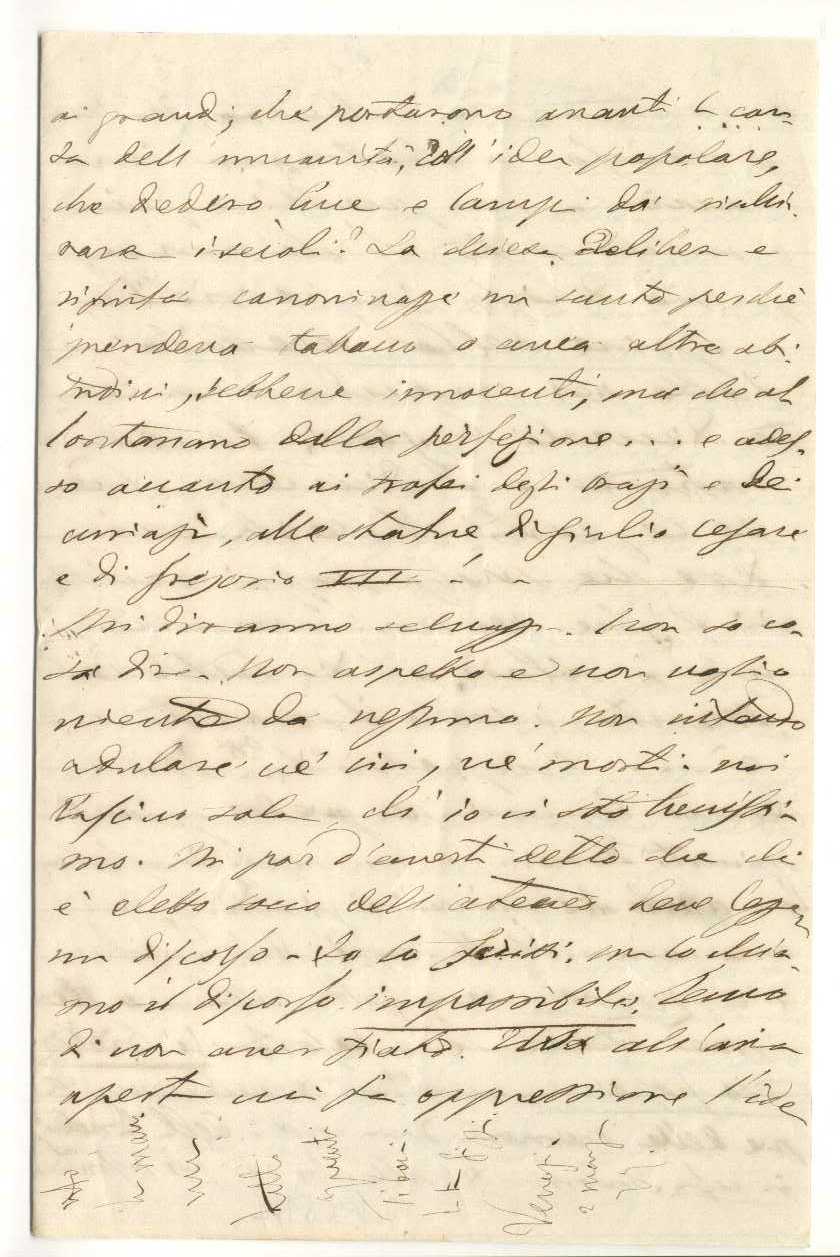 ai grandi, che portarono avanti la cau-
sa dell'umanità, coll'idea popolare,
che diedero luce e lampi da rischia-
rare i secoli? La chiesa delibera e
rifiuta canonizzare un santo perchè
prendeva tabacco o avea altre abi-
tudini, sebbene innocenti, ma che al-
lontanano dalla perfezione... e ades-
so avanti ai trofei degli Orazi e dei
Curiazi, alle statue di Giulio Cesare
e di Gregorio VII!
Mi diranno selvaggi. Non so co-
sa dire. Non aspetto e non voglio
niente da nessuno. Non intendo
adulare nè vivi, nè morti: mi
lascino sola, ch'io ci sto benissi-
mo. Mi par d'averti detto che chi
è eletto socio dell'ateneo deve leggere
un discorso. Io lo scrissi, ma lo chia-
mo il discorso impossibile. Temo
di non aver fiato. all'aria
aperta mi fa oppressione l'idea
Venezia
2 marzo